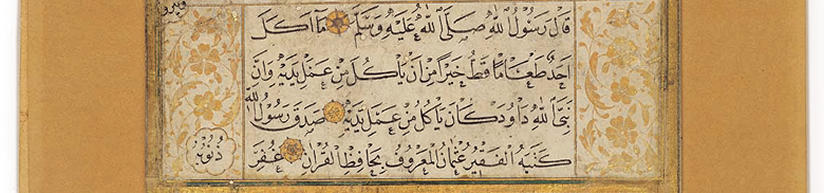 قَالَ رَسُولُ اللّٰهِ صَلَّى اللّٰهُ عَلَيْهِ وَسَلَّمَ مَا اَكَلَ
اَحَدٌ طَعَامًا قَطُّ خَيْرًا مِنْ اَنْ يَاْكُلَ مِنْ عَمَلِ يَدَيْهِ وَاِنَّ
نَبِىَّ اللّٰهِ دَاوُدَ كَانَ يَاْكُلُ مِنْ عَمَلِ يَدَيْهِ صَدَقَ رَسُولُ اللّٰهِ
كَتَبَهُ الْفَقِيرُ عُثْمَانُ الْمَعْرُوفُ بِحَافِظِ الْقُرْاٰنِ غُفِرَ
ذُنُوبُهُ